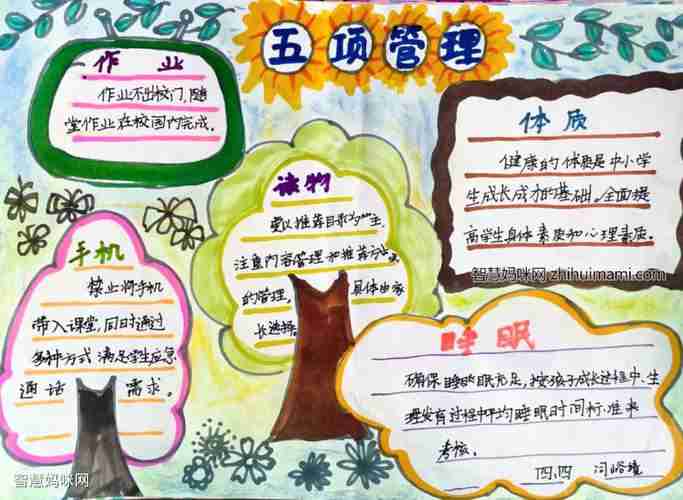 五项管理
作业
作业不出校门，随
堂作业在校园内完成。
体质
健康的体质是中小学
生成长成才的基础。全面提
高学生身体素质和心理素质。
智慧妈咪网 zhihuimami.com
读物
要以推荐目录为主，
注重内容管理和推荐方式
的管理，具体由家
长选择。
手机
禁止将手机
带入课堂，同时通过
多种方式满足学生应急
通话需求。
睡眠
确保睡眠充足，按孩子成长过程中、生
理发育过程中平均睡眠时间标准来
考核。
四、四
智慧妈咪网